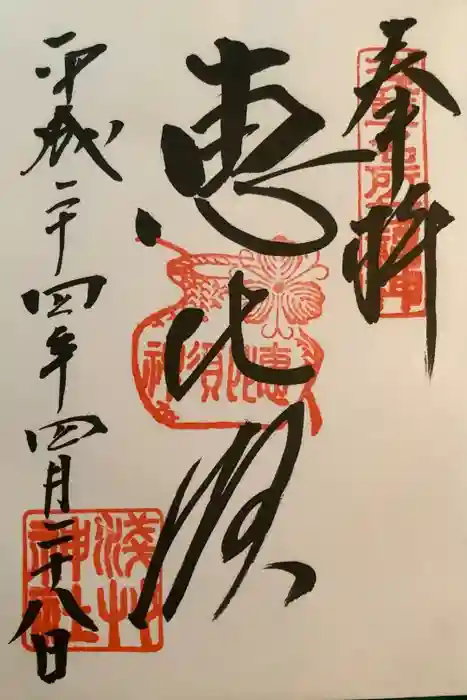 奉拝
浅草名所七福神
恵比須
恵比須神
平成二十四年四月二十八日
淺草神社